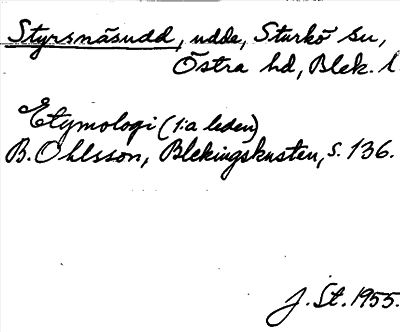 Styrsnäsudd, udde, Sturkö sn,
Östra hd, Blek. l.
Etymologi (1:a leden)
B. Ohlsson, Blekingskusten, s. 136.
J. St. 1955.